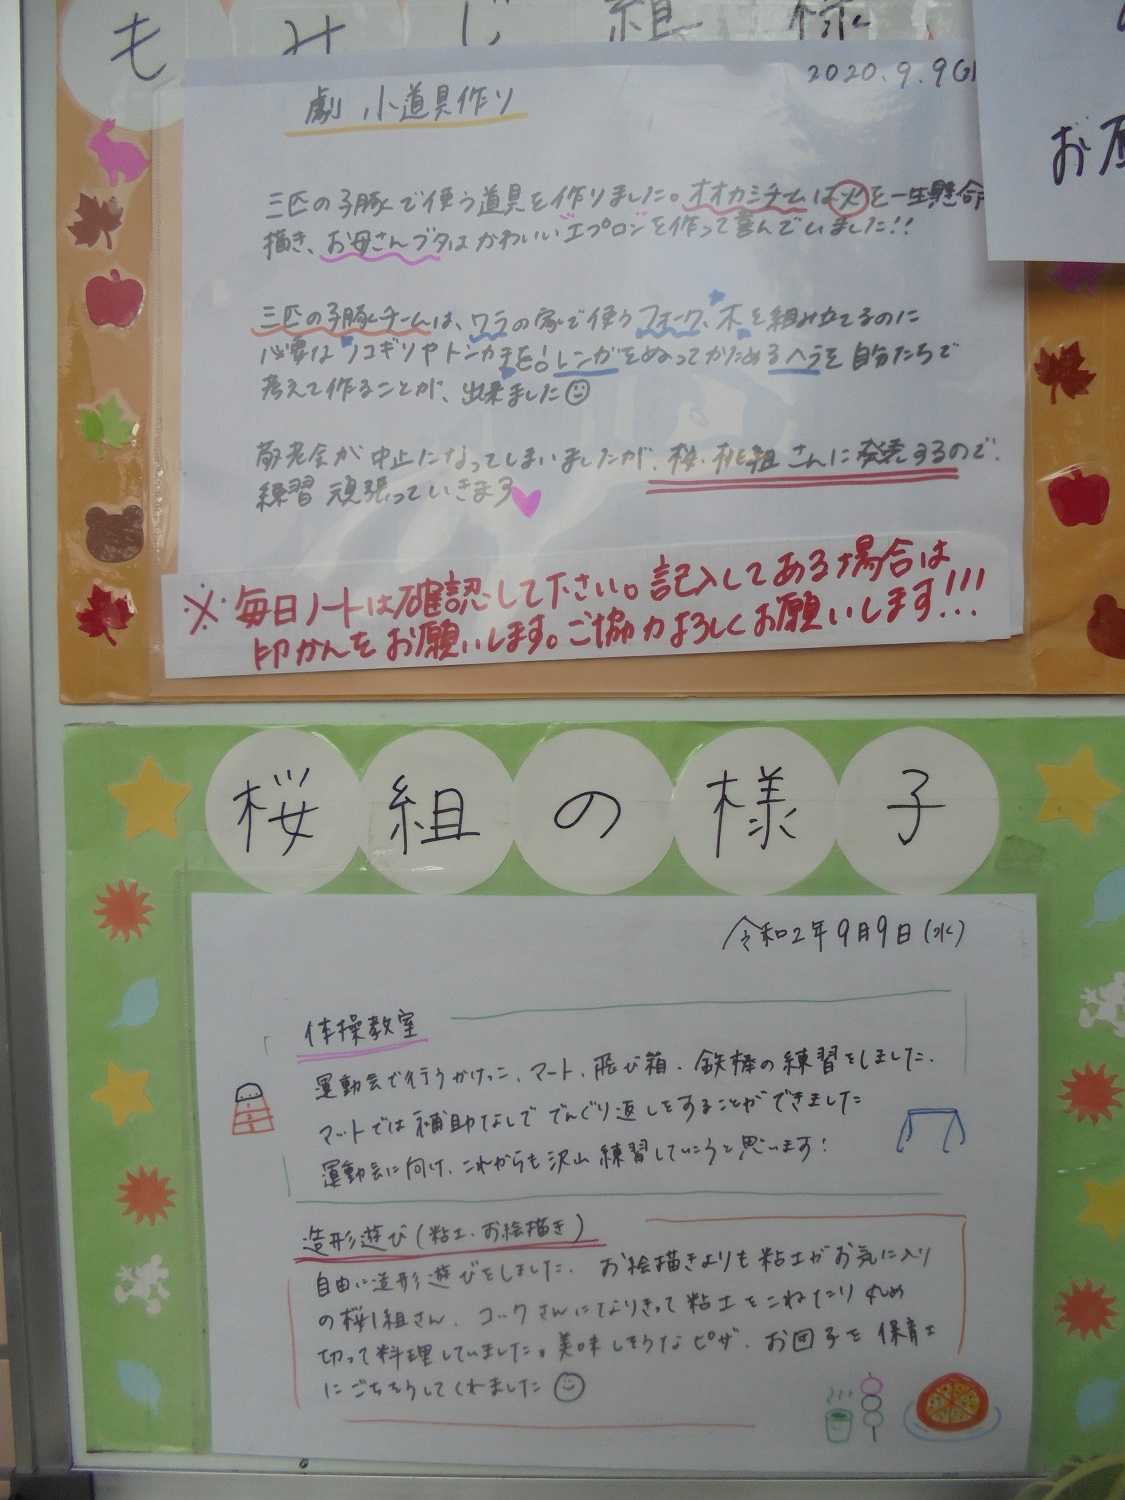 もみじ組様
2020.9.9(水
お
劇 小道具作り
三匹の子豚で使う道具を作りました。オオカミチームは火を一生懸命
描き、お母さんブタはかわいいエプロンを作って喜んでいました!!
三匹の子豚チームは、ワラの家で使うフォーク、木を組み立てるのに
必要なノコギリやトンカチを!レンガをぬってかためるヘラを自分たちで
考えて作ることが、出来ました
敬老会が中止になってしまいましたが、桜・桃組さんに発表するので、
練習頑張っていきます
※毎日ノートは確認して下さい。記入してある場合は
印かんをお願いします。ご協力よろしくお願いします!!!
桜組の様子
令和2年9月9日(水)
体操教室
運動会で行うかけっこ、マート、飛び箱、鉄棒の練習をしました。
マットでは補助なしででんぐり返しをすることができました
運動会に向け、これからも沢山練習していこうと思います!
造形遊び(粘土・お絵描き)
自由に造形遊びをしました。お絵描きよりも粘土がお気に入り
の桜1組さん。コックさんになりきって粘土をこねたり丸め
切って料理していました。美味しそうなピザ、お団子を保育士
にごちそうしてくれました